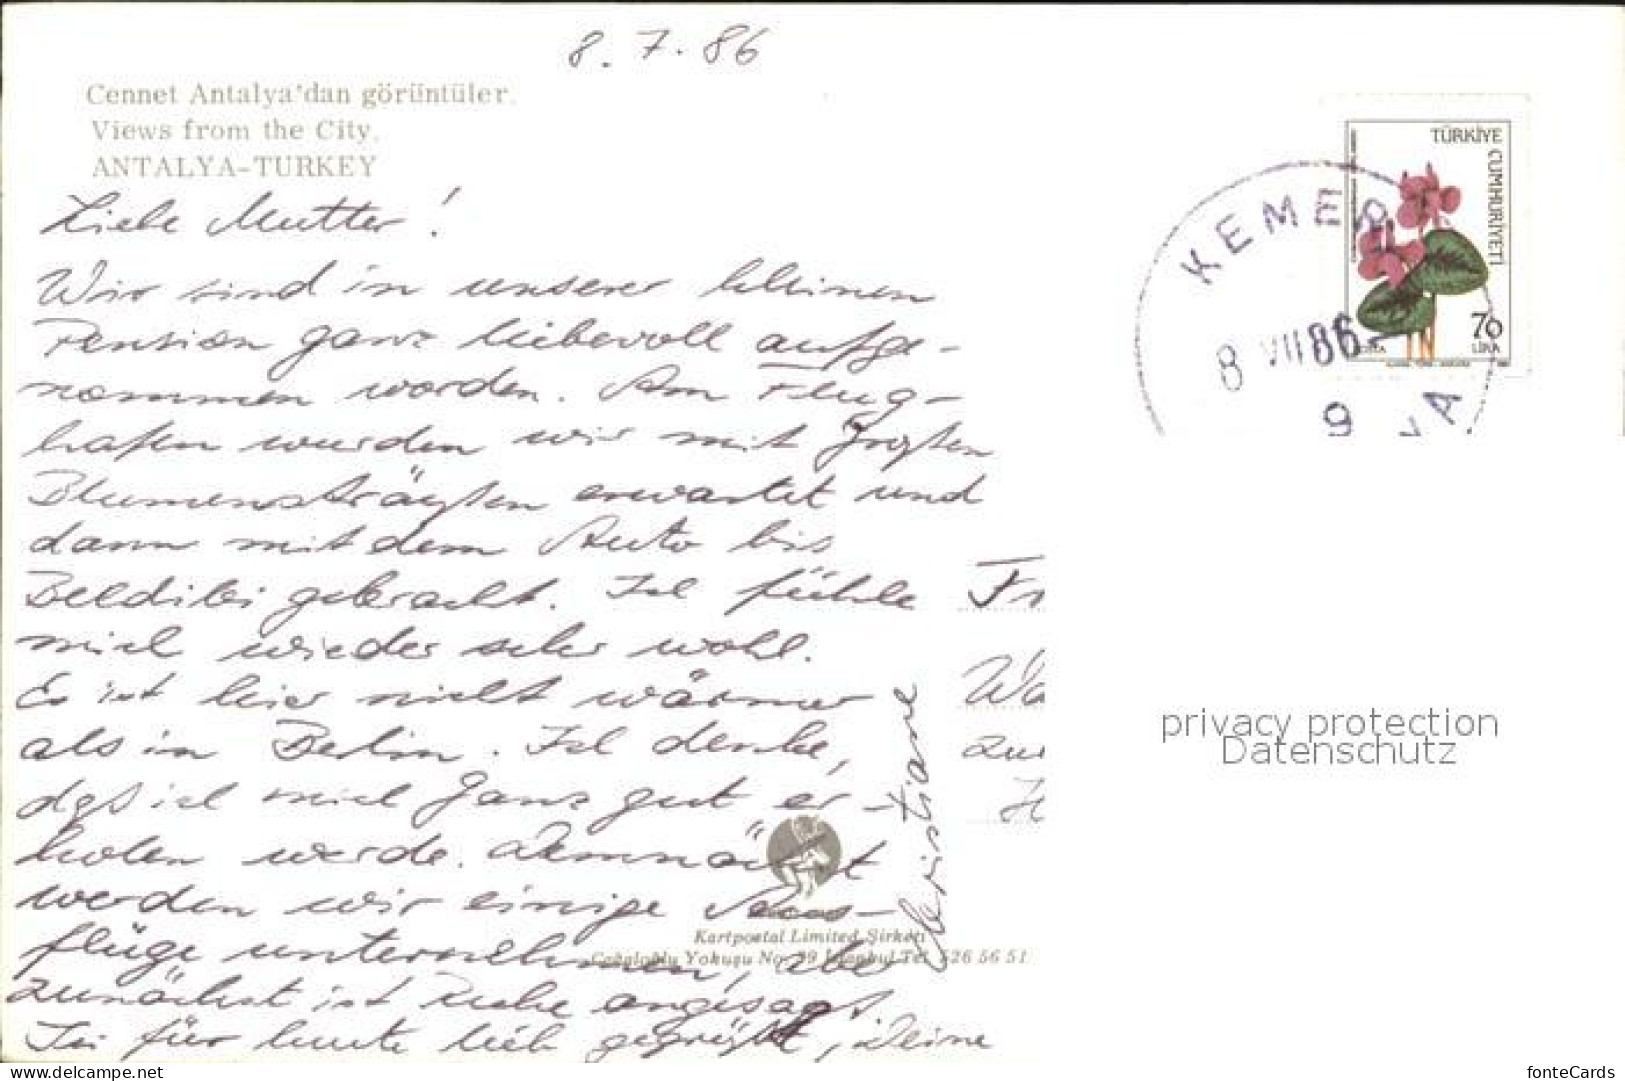 8. 7. 86
Cennet Antalya'dan görüntüler.
Views from the City.
ANTALYA-TURKEY
Liebe Mutter!
Wir sind in unserer kleinen
Pension ganz liebevoll aufge-
nommen worden. Am Flug-
hafen wurden wir mit großen
Blumensträußen erwartet und
dann mit dem Auto bis
Beldibi gebracht. Ich fühle
mich wieder sehr wohl.
Es ist hier nicht wärmer
als in Berlin. Ich denke,
daß ich mich ganz gut er-
holen werde. Demnächst
werden wir einige Aus-
flüge unternehmen, aber
zunächst ist Ruhe angesagt.
Sei für heute lieb gegrüßt, Deine
Christiane
Kartpostal Limited Şirketi
Cağaloğlu Yokuşu No. 29 İstanbul Tel. 526 56 51
TÜRKİYE CUMHURİYETİ
70
LİRA
KEMER
8 VII 86
9
Fr
Wa
zu
H
privacy protection
Datenschutz
delcampe.net
fonteCards